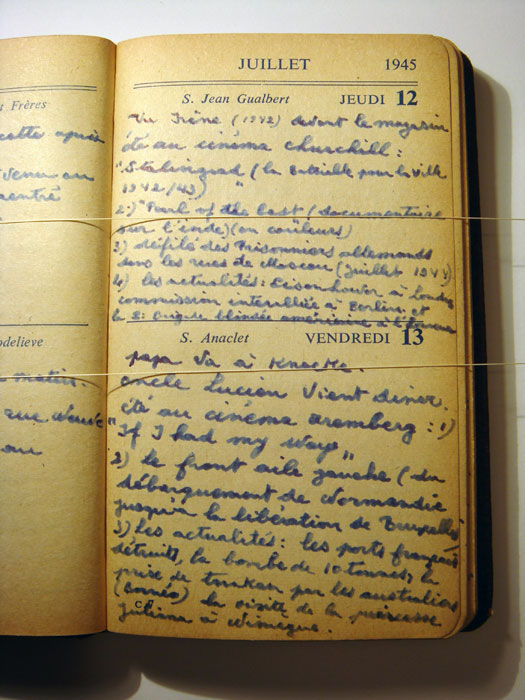 t Frères
après
venu au
rentré
odelieve
matin.
rue
au
JUILLET 1945
S. Jean Gualbert JEUDI 12
Vu Irène (1942) devant le magasin
été au cinéma churchill :
"Stalingrad (la bataille pour la ville
1942/43) "
2:) "Pearl of the East (documentaire
sur l'inde) (en couleurs)
3) défilé des Prisonniers allemands
dans les rues de Moscou (juillet 1944)
4) les actualités: Eisenhower à Londres,
commission interalliée à Berlin, et
la 2: Brigade blindée américaine à l'honneur
S. Anaclet VENDREDI 13
papa va à Knocke.
oncle Lucien vient diner.
été au cinéma aremberg : 1)
"If I had my way"
2) le front aile gauche (du
débarquement de Normandie
jusqu'à la libération de Bruxelles)
3) les actualités: les ports français
détruits, la bombe de 10 tonnes, la
prise de tarakan par les australiens
(Bornéo) la visite de la princesse
juliana à Nimègue.